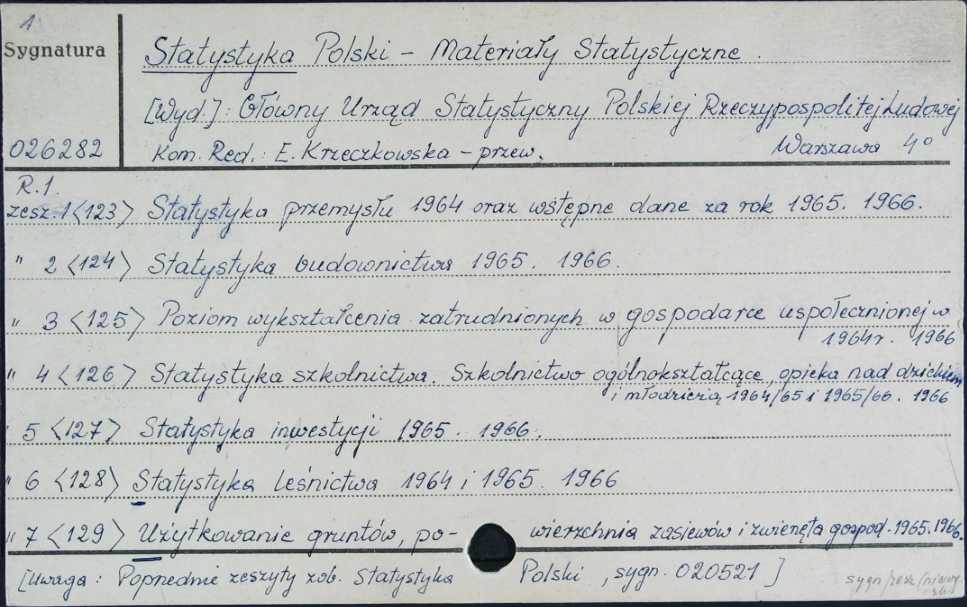 1
Sygnatura
Statystyka Polski - Materiały Statystyczne.
[Wyd.]: Główny Urząd Statystyczny Polskiej Rzeczypospolitej Ludowej
026282
Kom. Red.: E. Krzeczkowska - przew. Warszawa 4°
R.1.
zesz. 1 <123> Statystyka przemysłu 1964 oraz wstępne dane za rok 1965. 1966.
" 2 <124> Statystyka budownictwa 1965. 1966.
" 3 <125> Poziom wykształcenia zatrudnionych w gospodarce uspołecznionej w
1964r. 1966
" 4 <126> Statystyka szkolnictwa. Szkolnictwo ogólnokształcące, opieka nad dzieckiem
i młodzieżą 1964/65 i 1965/66. 1966
" 5 <127> Statystyka inwestycji 1965. 1966.
" 6 <128> Statystyka leśnictwa 1964 i 1965. 1966
" 7 <129> Użytkowanie gruntów, po- wierzchnia zasiewów i zwierzęta gospod. 1965. 1966.
[Uwaga: Poprzednie zeszyty zob. Statystyka Polski, sygn. 020521]